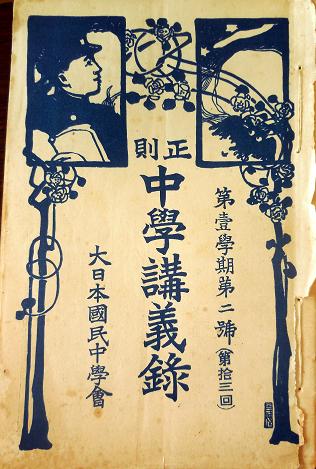 正則
中學講義錄
第壹學期第二號(第拾三回)
大日本國民中學會